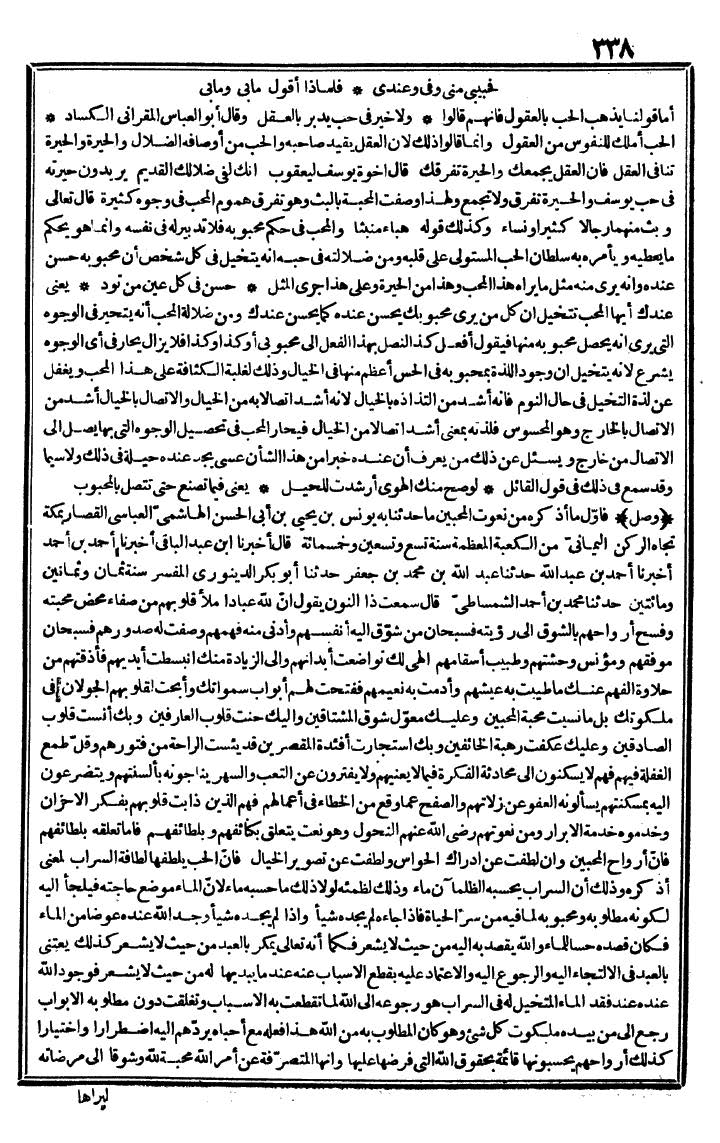 ٣٣٨
فحبيبي منى وفى وعندى * فلماذا أقول مابى ومابى
أما قولنا يذهب الحب بالعقول فانهم قالوا * ولا خير فى حب يدبر بالعقل وقال أبو العباس المقرانى الكساد *
الحب أملك للنفوس من العقول وانما قالوا ذلك لان العقل يقيد صاحبه والحب من أوصافه الضلال والحيرة والحيرة
تنافى العقل فان العقل يجمعك والحيرة تفرقك قال اخوة يوسف ليعقوب انك لفى ضلالك القديم يريدون حيرته
فى حب يوسف والحيرة تفرق ولا تجمع ولهذا وصفت المحبة بالبث وهو تفرق هموم المحب فى وجوه كثيرة قال تعالى
وبث منهما رجالا كثيرا ونساء وكذلك قوله هباء منبثا والمحب فى حكم محبوبه فلا تدبير له فى نفسه وانما هو بحكم
ما يعطيه ويأمره به سلطان الحب المستولى على قلبه ومن ضلالته فى حبه انه يتخيل فى كل شخص أن محبوبه حسن
عنده وانه يرى منه مثل ما يراه هذا المحب وهذا من الحيرة وعلى هذا جرى المثل * حسن فى كل عين من تود * يعنى
عندك أيها المحب تتخيل ان كل من يرى محبوبك يحسن عنده كما يحسن عندك ومن ضلالة المحب أنه يتحير فى الوجوه
التى يرى انه يحصل محبوبه منها فيقول أفعل كذا لنصل بهذا الفعل الى محبوبى أو كذا وكذا فلا يزال يحار فى أى الوجوه
يشرع لانه يتخيل ان وجود اللذة بمحبوبه فى الحس أعظم منها فى الخيال وذلك لغلبة الكثافة على هذا المحب ويغفل
عن لذة التخيل فى حال النوم فانه أشد من التذاذه بالخيال لانه أشد اتصالا به من الخيال والاتصال بالخيال أشد من
الاتصال بالخارج وهو المحسوس فلذته بمعنى أشد اتصالا من الخيال فيحار المحب فى تحصيل الوجوه التى بها يصل الى
الاتصال من خارج ويسئل عن ذلك من يعرف أن عنده خبرا من هذا الشأن عسى يجد عنده حيلة فى ذلك ولا سيما
وقد سمع فى ذلك فى قول القائل * لو صح منك الهوى أرشدت للحيل * يعنى فيما تصنع حتى تتصل بالمحبوب
﴿وصل﴾ فاول ما أذكره من نعوت المحبين ما حدثنا به يونس بن يحيى بن أبى الحسن الهاشمى العباسى القصار بمكة
تجاه الركن اليمانى من الكعبة المعظمة سنة تسع وتسعين وخمسمائة قال أخبرنا ابن عبد الباقى أخبرنا أحمد بن أحمد
أخبرنا أحمد بن عبد الله حدثنا عبد الله بن محمد بن جعفر حدثنا أبو بكر الدينورى المفسر سنة ثمان وثمانين
ومائتين حدثنا محمد بن أحمد الشمساطى قال سمعت ذا النون يقول ان لله عبادا ملأ قلوبهم من صفاء محض محبته
وفسح أرواحهم بالشوق الى رؤيته فسبحان من شوق اليه أنفسهم وأدنى منه فهمهم وصفت له صدورهم فسبحان
موفقهم ومؤنس وحشتهم وطبيب أسقامهم الهى لك تواضعت أبدانهم والى الزيادة منك انبسطت أيديهم فأذقتهم من
حلاوة الفهم عنك ما طيبت به عيشهم وأدمت به نعيمهم ففتحت لهم أبواب سمواتك وأبحت لقلوبهم الجولان فى
ملكوتك بل ما نسيت محبة المحبين وعليك معول شوق المشتاقين واليك حنت قلوب العارفين وبك أنست قلوب
الصادقين وعليك عكفت رهبة الخائفين وبك استجارت أفئدة المقصرين قد يئست الراحة من فتورهم وقل طمع
الغفلة فيهم فهم لا يسكنون الى محادثة الفكرة فيما لا يعنيهم ولا يفترون عن التعب والسهر يناجونه بألسنتهم ويتضرعون
اليه بمسكنتهم يسألونه العفو عن زلاتهم والصفح عما وقع من الخطاء فى أعمالهم فهم الذين ذابت قلوبهم بفكر الاحزان
وخدموه خدمة الابرار ومن نعوتهم رضى الله عنهم النحول وهو نعت يتعلق بكثائفهم وبلطائفهم فاما تعلقه بلطائفهم
فان أرواح المحبين وان لطفت عن ادراك الحواس ولطفت عن تصوير الخيال فان الحب يلطفها لطافة السراب لمعنى
أذكره وذلك أن السراب يحسبه الظمآن ماء وذلك لظمئه لولا ذلك ما حسبه ماء لان الماء موضع حاجته فيلجأ اليه
لكونه مطلوبه ومحبوبه لما فيه من سر الحياة فاذا جاءه لم يجده شيأ واذا لم يجده شيأ وجد الله عنده عوضا من الماء
فكان قصده حسا للماء والله يقصد به اليه من حيث لا يشعر فكما أنه تعالى يمكر بالعبد من حيث لا يشعر كذلك يعتنى
بالعبد فى الالتجاء اليه والرجوع اليه والاعتماد عليه بقطع الاسباب عنه عند ما يبديها له من حيث لا يشعر فوجود الله
عنده عند فقد الماء المتخيل له فى السراب هو رجوعه الى الله لما تقطعت به الاسباب وتغلقت دون مطلوبه الابواب
رجع الى من بيده ملكوت كل شئ وهو كان المطلوب به من الله هذا فعله مع أحبابه يردهم اليه اضطرارا واختيارا
كذلك أرواحهم يحسبونها قائمة بحقوق الله التى فرضها عليها وانها المتصرفة عن أمر الله محبة لله وشوقا الى مرضاته
ليراها